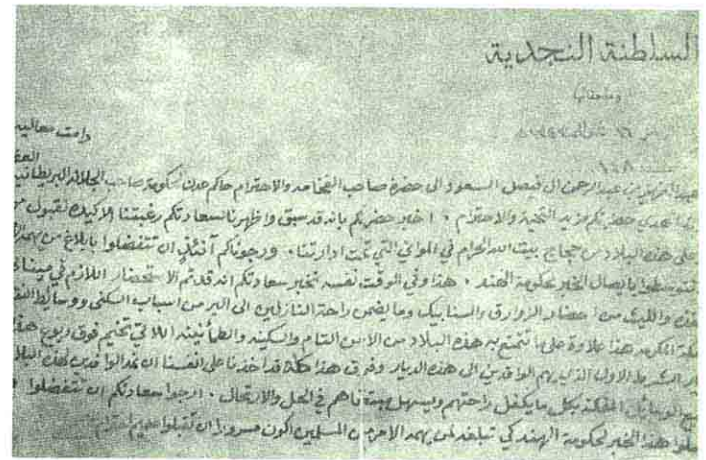 السلطنة النجدية
وملحقاتها
دامت معاليه
عبد العزيز بن عبد الرحمن ال فيصل السعود الى حضرة صاحب الفخامه والاحترام حاكم عدن لحكومة صاحب الجلالة البريطانية
حضرتكم مزيد التحية والاحترام . اخبر حضرتكم بانه قد سبق واظهرنا لسعادتكم رغبتنا الاكيده لقبول من
على هذه البلاد من حجاج بيت الله الحرام في الموانئ التي تحت ادارتنا . ورجوناكم ان تتفضلوا بابلاغ من يهمه
بايصال الخبر لحكومة الهند . هذا وفي الوقت نفسه نخبر سعادتكم انه قد تم الاستحضار اللازم في
والليث من احضار الزوارق والسنابيك وما يضمن راحة النازلين الى البر من اسباب السكنى ووسايط
المكرمه هذا علاوة على ما تتمتع به هذه البلاد من الامن التام والسكينه والطمأنينه اللاتي تخيم فوق ربوع
الوافدين الى هذه الديار وفوق هذا كله قد اخذنا على انفسنا ان نمد الوافدين
الممكنه بكل ما يكفل راحتهم ويسهل في الحل والارتحال . ارجوا سعادتكم ان تتفضلوا
هذا الخبر لحكومة الهند كي تبلغه لمن يهمه الامر من المسلمين اكون مسرورا ان تقبلوا عظيم احترام